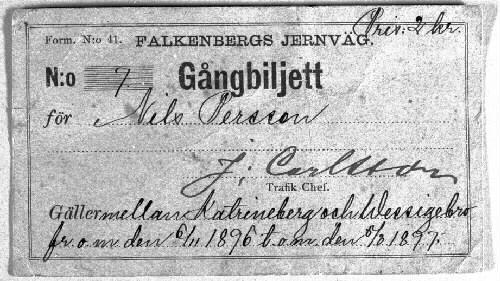 Pris: 2 kr.
Form. N:o 41. FALKENBERGS JERNVÄG.
N:o 7. Gångbiljett
för Nils Persson
J. Carlsson
Trafik Chef.
Gäller mellan Katrineberg och Wessigebro
fr.o.m. den 6/11 1896 t.o.m. den 5/2 1897.